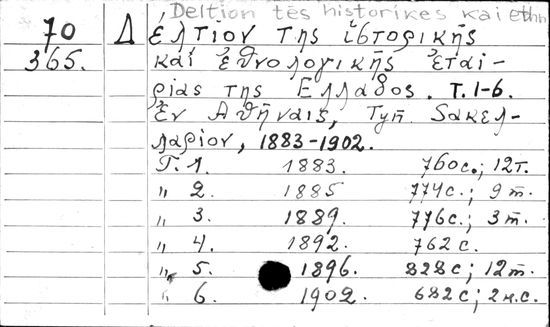 Deltion tēs historikes kai ethn
70 Δελτίον τῆς ἱστορικῆς
365. καί ἐθνολογικῆς ἑται-
ρίας τῆς Ἑλλάδος. T. 1-6.
Ἐν Ἀθήναις, Τυπ. Σακελ-
λαρίου, 1883-1902.
Т. 1. 1883. 760с.; 12т.
" 2. 1885 774с.; 9 т.
" 3. 1889. 776с.; 3 т.
" 4. 1892. 762 с.
" 5. 1896. 828 с; 12т.
" 6. 1902. 682 с; 2 н.с.